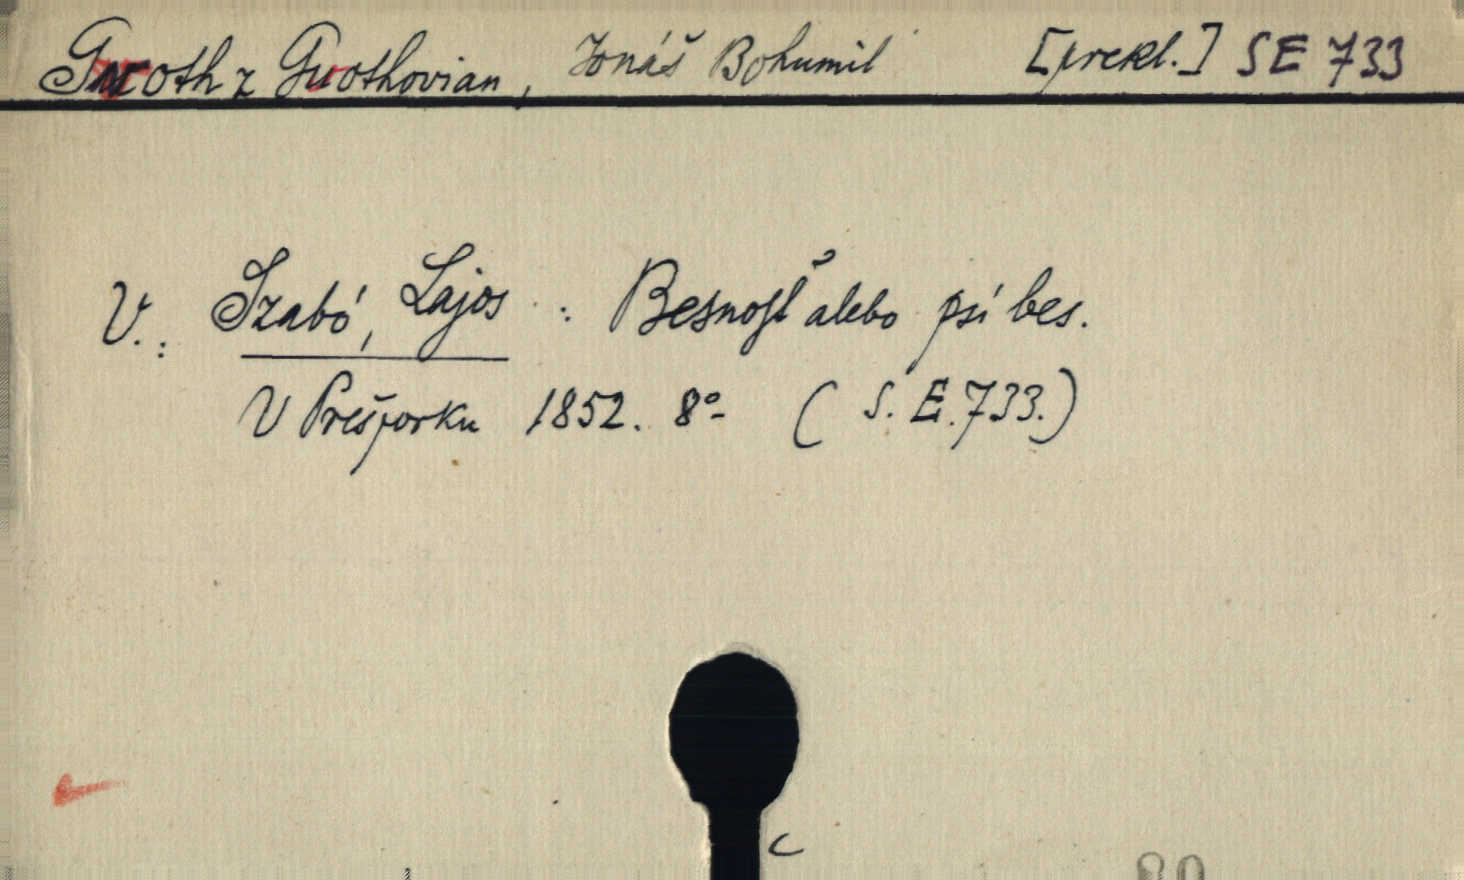 Guoth z Guothovian, Jonáš Bohumil [prekl.] SE 733
V.: Szabó, Lajos : Besnosť alebo psí bes.
V Prešporku 1852. 8° (S. E. 733.)
c